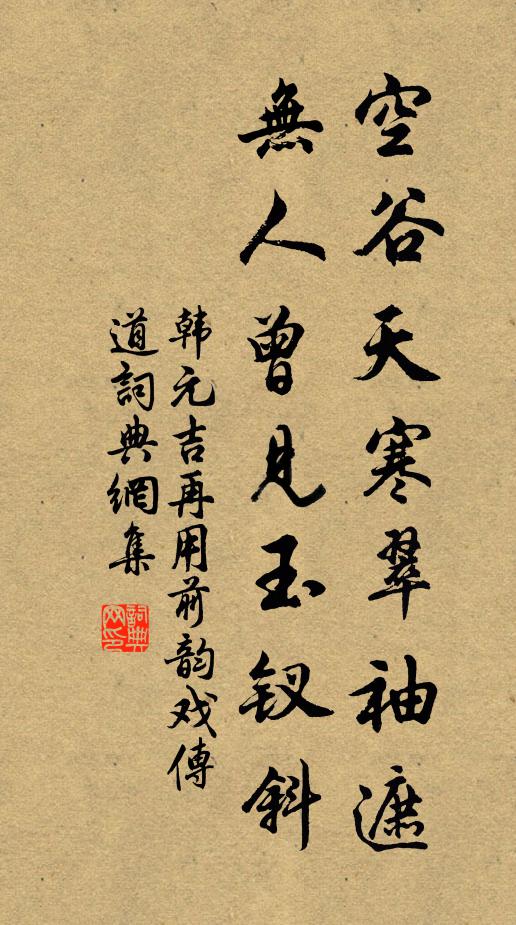 空谷天寒翠袖遮
無人曾見玉钗斜
韩元吉再用前韵戏傳
道詞典網集
詞典网印